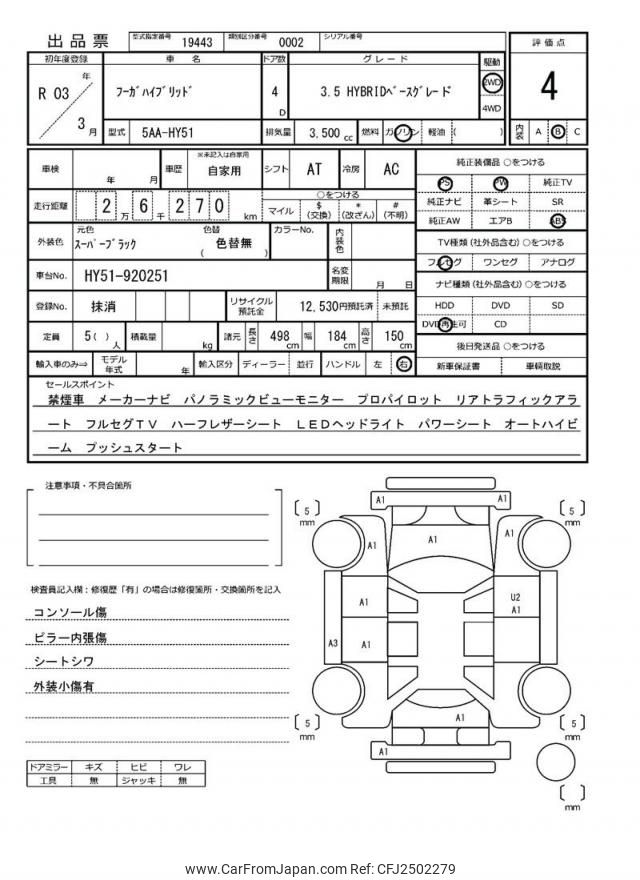 出品票 型式指定番号 19443 類別区分番号 0002 シリアル番号
初年度登録 車名 ドア数 グレード 駆動 評価点
R 03 年 3 月 フーガハイブリッド 4 D 3.5 HYBRIDベースグレード 2WD 4WD 4
型式 5AA-HY51 排気量 3,500 cc 燃料 ガソリン 軽油 ( ) 内装 A B C
車検 年 月 車歴 ※未記入は自家用 自家用 シフト AT 冷房 AC 純正装備品 ○をつける
PS PW 純正TV
走行距離 2 万 6 千 2 7 0 km ○をつける
マイル $ (交換) * (改ざん) # (不明)
純正ナビ 革シート SR
純正AW エアB ABS
外装色 元色 スーパーブラック 色替 ( 色替無 ) カラーNo. 内装色
TV種類 (社外品含む) ○をつける
フルセグ ワンセグ アナログ
車台No. HY51-920251 名変期限 月 日
ナビ種類 (社外品含む) ○をつける
登録No. 抹消 リサイクル預託金 12,530円預託済 未預託
HDD DVD SD
DVD再生可 CD
定員 5( ) 人 積載量 kg 諸元 長さ 498 cm 幅 184 cm 高さ 150 cm
後日発送品 ○をつける
輸入車のみ⇒ モデル年式 年 輸入区分 ディーラー 並行 ハンドル 左 右 新車保証書 車輌取説
セールスポイント
禁煙車 メーカーナビ パノラミックビューモニター プロパイロット リアトラフィックアラ
ート フルセグTV ハーフレザーシート LEDヘッドライト パワーシート オートハイビ
ーム プッシュスタート
注意事項・不具合箇所
検査員記入欄：修復歴「有」の場合は修復箇所・交換箇所を記入
コンソール傷
ピラー内張傷
シートシワ
外装小傷有
ドアミラー キズ ヒビ ワレ
工具 無 ジャッキ 無
A1 A1
[ 5 ] mm [ 5 ] mm
A1 A1 A1
A1 U2 A1
A3 A1
A1
[ 5 ] mm [ 5 ] mm
A1
[ ] mm
www.CarFromJapan.com Ref: CFJ2502279